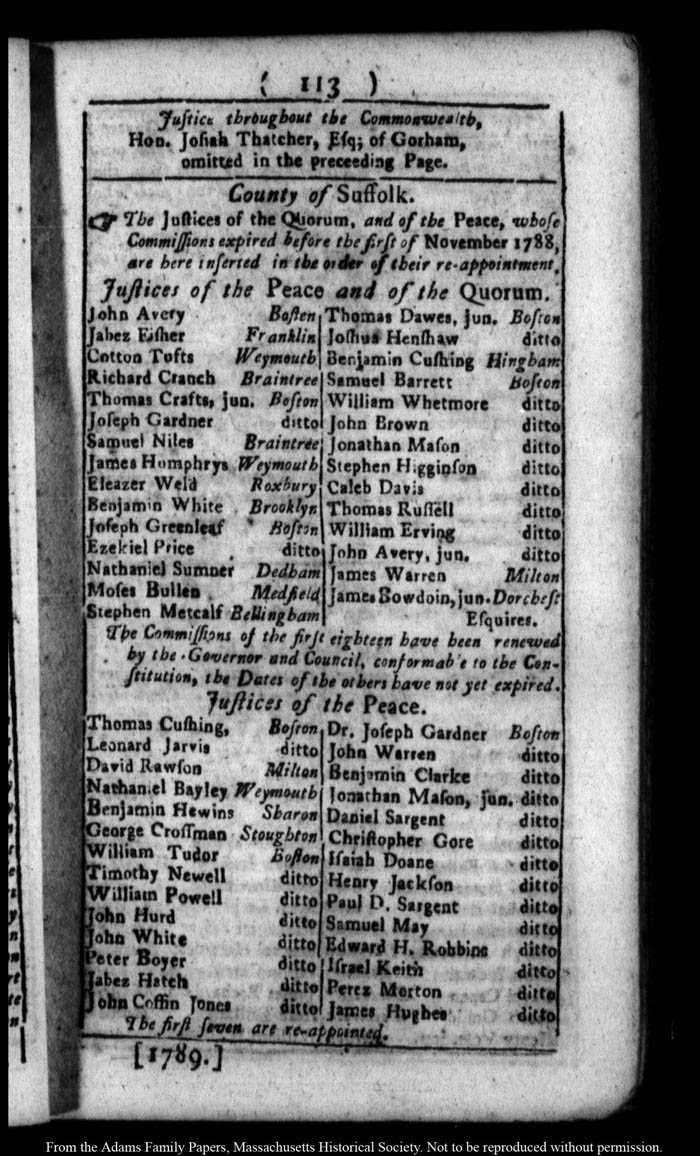 ( 113 )
Juſtice throughout the Commonwealth,
Hon. Joſiah Thatcher, Eſq; of Gorham,
omitted in the preceeding Page.
County of Suffolk.
☞ The Juſtices of the Quorum, and of the Peace, whoſe
Commiſſions expired before the firſt of November 1788,
are here inſerted in the order of their re-appointment.
Juſtices of the Peace and of the Quorum.
John Avery Boſton
Jabez Fiſher Franklin
Cotton Tufts Weymouth
Richard Cranch Braintree
Thomas Crafts, jun. Boſton
Joſeph Gardner ditto
Samuel Niles Braintree
James Humphrys Weymouth
Eleazer Weld Roxbury
Benjamin White Brooklyn
Joſeph Greenleaf Boſton
Ezekiel Price ditto
Nathaniel Sumner Dedham
Moſes Bullen Medfield
Stephen Metcalf Bellingham
Thomas Dawes, jun. Boſton
Joſhua Henſhaw ditto
Benjamin Cuſhing Hingham
Samuel Barrett Boſton
William Whetmore ditto
John Brown ditto
Jonathan Maſon ditto
Stephen Higginſon ditto
Caleb Davis ditto
Thomas Ruſſell ditto
William Erving ditto
John Avery, jun. ditto
James Warren Milton
James Bowdoin, jun. Dorcheſt
Eſquires.
The Commiſſions of the firſt eighteen have been renewed
by the Governor and Council, conformab'e to the Con-
ſtitution, the Dates of the others have not yet expired.
Juſtices of the Peace.
Thomas Cuſhing, Boſton
Leonard Jarvis ditto
David Rawſon Milton
Nathaniel Bayley Weymouth
Benjamin Hewins Sharon
George Croſſman Stoughton
William Tudor Boſton
Timothy Newell ditto
William Powell ditto
John Hurd ditto
John White ditto
Peter Boyer ditto
Jabez Hatch ditto
John Coffin Jones ditto
Dr. Joſeph Gardner Boſton
John Warren ditto
Benjamin Clarke ditto
Jonathan Maſon, jun. ditto
Daniel Sargent ditto
Chriſtopher Gore ditto
Iſaiah Doane ditto
Henry Jackſon ditto
Paul D. Sargent ditto
Samuel May ditto
Edward H. Robbins ditto
Iſrael Keith ditto
Perez Morton ditto
James Hughes ditto
The firſt ſeven are re-appointed.
[1789.]
From the Adams Family Papers, Massachusetts Historical Society. Not to be reproduced without permission.